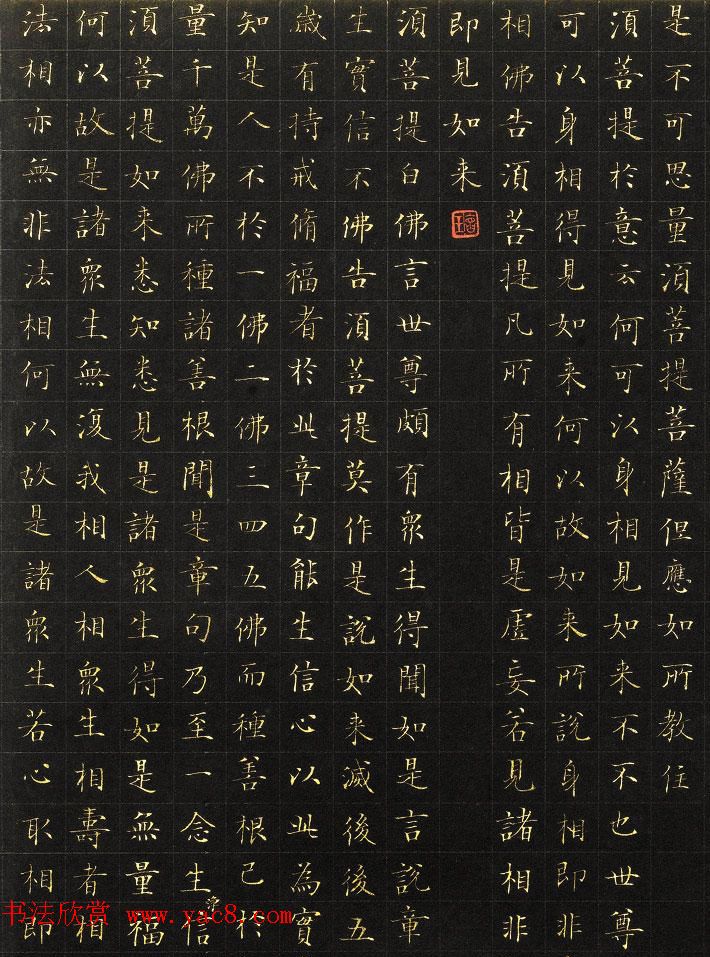 是不可思量須菩提菩薩但應如所教住
須菩提於意云何可以身相見如来不不也世尊
可以身相得見如来何以故如来所說身相即非
相佛告須菩提凡所有相皆是虚妄若見諸相非
即見如来
須菩提白佛言世尊頗有衆生得聞如是言說章
生實信不佛告須菩提莫作是說如来滅後後五
歳有持戒脩福者於此章句能生信心以此為實
知是人不於一佛二佛三四五佛而種善根已於
量千萬佛所種諸善根聞是章句乃至一念生淨信
須菩提如来悉知悉見是諸衆生得如是無量福
何以故是諸衆生無復我相人相衆生相壽者相
法相亦無非法相何以故是諸衆生若心取相即
书法欣赏 www.yac8.com